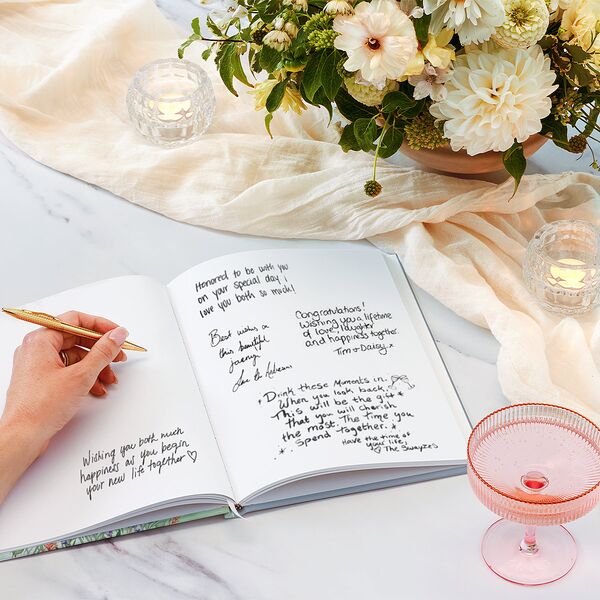 Wishing you both much
happiness as you begin
your new life together ♡
Honored to be with you
on your special day I
love you both so much!
Congratulations!
Wishing you a lifetime
of love, laughter
and happiness together.
Tim + Daisy x
Best wishes on
this beautiful
journey
Drink these moments in.
When you look back,
This will be the gift
that you will cherish
the most. The time you
Spend together.
Have the time of
your life,
♡ The Swayzes